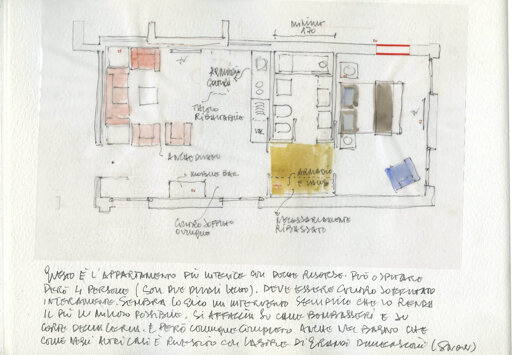 MINIMO
170
ARMADIO
CUCINA
TAVOLO
RIBALTABILE
ANCHE DIVANO
MOBILE BAR
CONTROSOFFITTO
OVUNQUE
ARMADIO
NECESSARIAMENTE
RIBASSATO
QUESTO È L'APPARTAMENTO PIÙ INFELICE CON POCHE RISORSE. PUÒ OSPITARE
PERÒ 4 PERSONE (CON DUE DIVANI LETTO). DEVE ESSERE CONTROSOFFITTATO
INTERAMENTE. SEMBRA LOGICO UN INTERVENTO SEMPLICE CHE LO RENDA
IL PIÙ LUMINOSO POSSIBILE. SI AFFACCIA SU CANNE E SU
CORTE DELLA. È PERÒ COMUNQUE COMPLETO ANCHE NEL BAGNO CHE
COME NEGLI ALTRI CASI È RIVESTITO CON LASTRE DI GRANDI DIMENSIONI